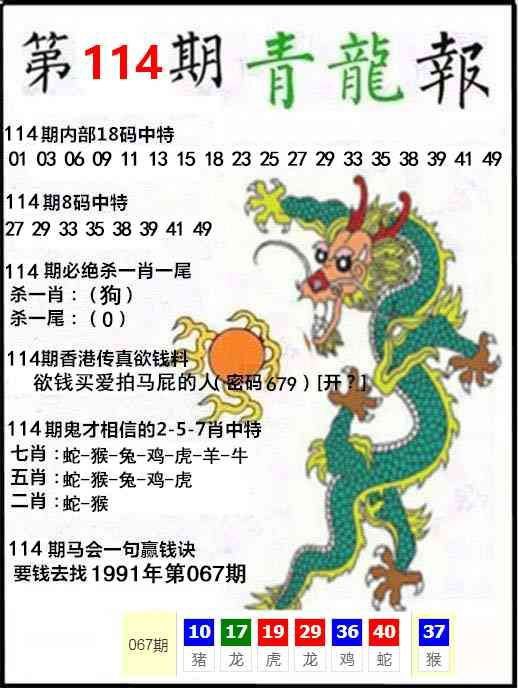 第114期青龍報
114期内部18码中特
01 03 06 09 11 13 15 18 23 25 27 29 33 35 38 39 41 49
114期8码中特
27 29 33 35 38 39 41 49
114期必绝杀一肖一尾
杀一肖：（狗）
杀一尾：（0）
114期香港传真欲钱料
欲钱买爱拍马屁的人（密码679）[开？]
114期鬼才相信的2-5-7肖中特
七肖：蛇-猴-兔-鸡-虎-羊-牛
五肖：蛇-猴-兔-鸡-虎
二肖：蛇-猴
114期马会一句赢钱诀
要钱去找1991年第067期
067期 10 17 19 29 36 40 37
猪 龙 虎 龙 鸡 蛇 猴